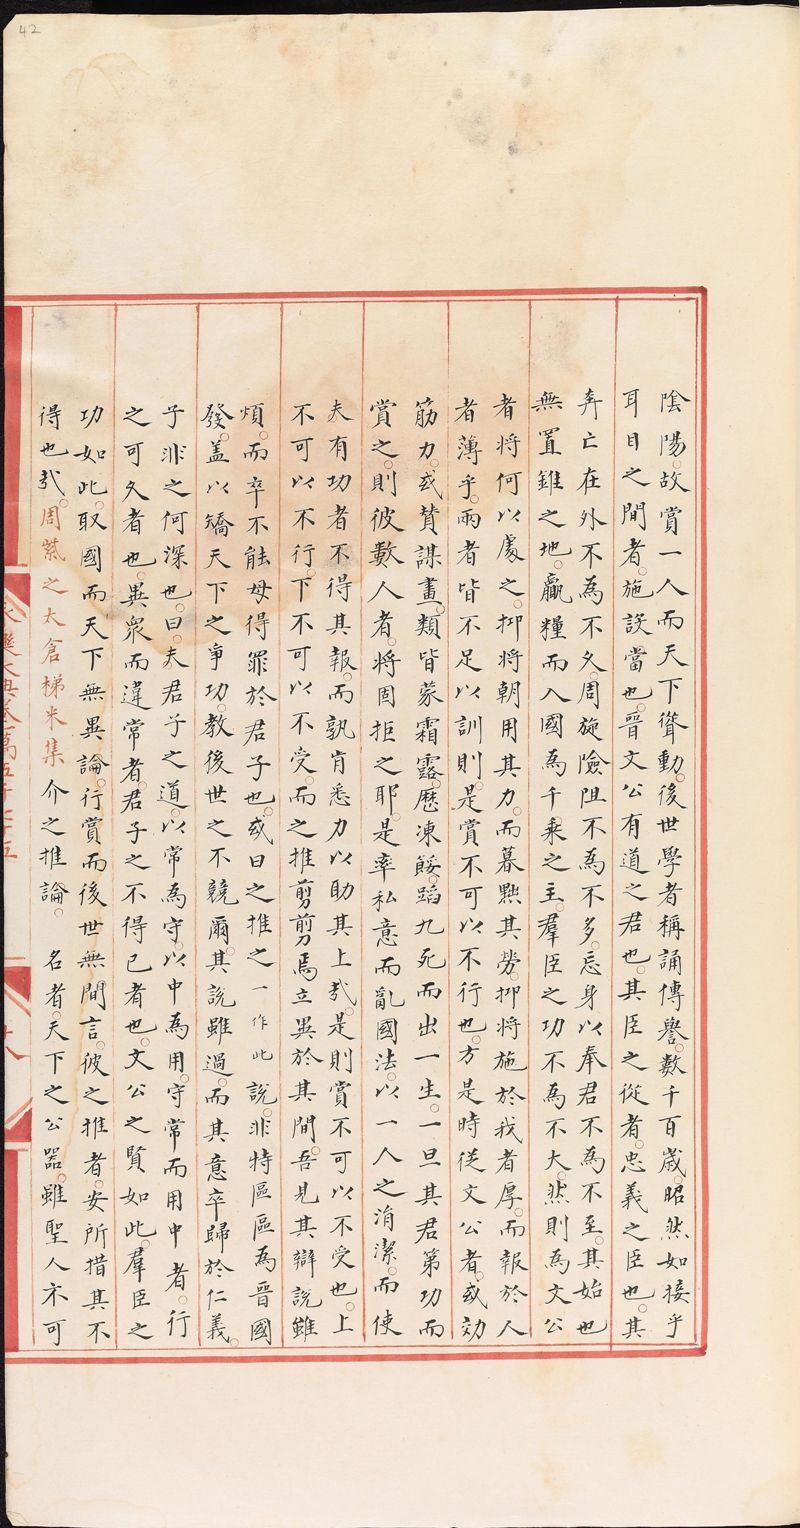 42
陰陽故賞一人而天下聳動後世學者稱誦傳譽數千百歲昭然如接乎
耳目之間者施設當也晉文公有道之君也其臣之從者忠義之臣也其
奔亡在外不為不久周旋險阻不為不多忘身以奉君不為不至其始也
無置錐之地羸糧而入國為千乘之主羣臣之功不為不大然則為文公
者將何以處之抑將朝用其力而暮黜其勞抑將施於我者厚而報於人
者薄乎兩者皆不足以訓則是賞不可以不行也方是時從文公者或効
筋力或賛謀畫類皆蒙霜露歷凍餒蹈九死而出一生一旦其君第功而
賞之則彼數人者將固拒之耶是率私意而亂國法以一人之㳙潔而使
夫有功者不得其報而孰肯悉力以助其上㢤是則賞不可以不受也上
不可以不行下不可以不受而之推剪剪焉立異於其間吾見其辯說雖
煩而卒不能毋得罪於君子也或曰之推之一作此說非特區區為晉國
發盖以矯天下之爭功教後世之不競爾其說雖過而其意卒歸於仁義
子非之何深也曰夫君子之道以常為守以中為用守常而用中者行
之可久者也異衆而違常者君子之不得已者也文公之賢如此羣臣之
功如此取國而天下無異論行賞而後世無間言彼之推者安所措其不
得也㢤周紫之太倉梯米集介之推論 名者天下之公器雖聖人不可
永樂大典卷一萬五千七十五
十八